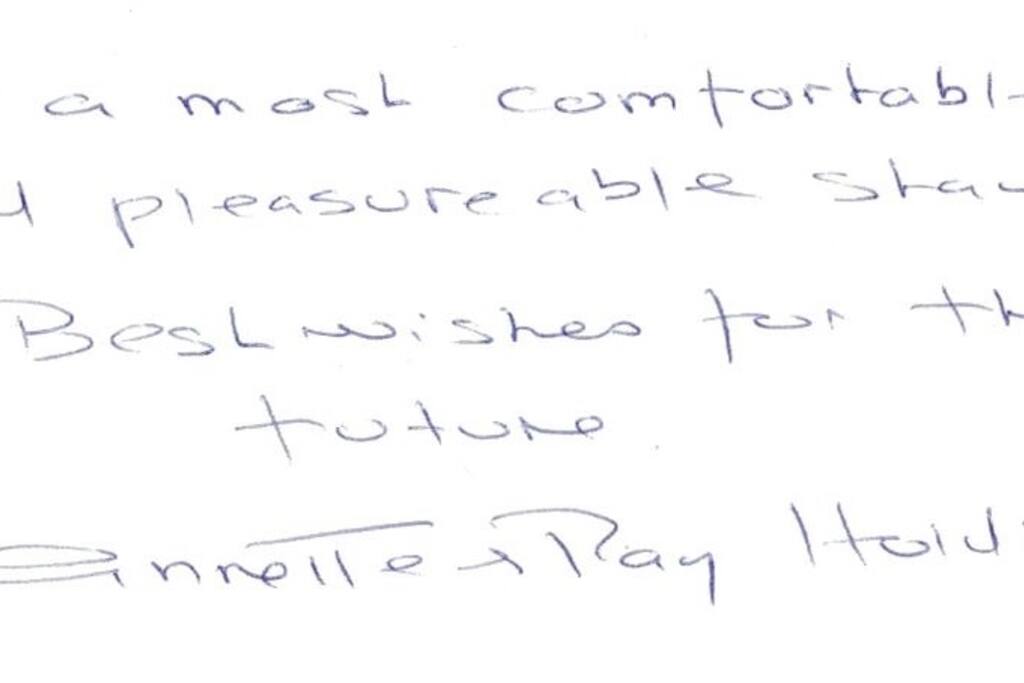 a most comfortabl
pleasureable stay
Best wishes for th
future.
Annette & Ray